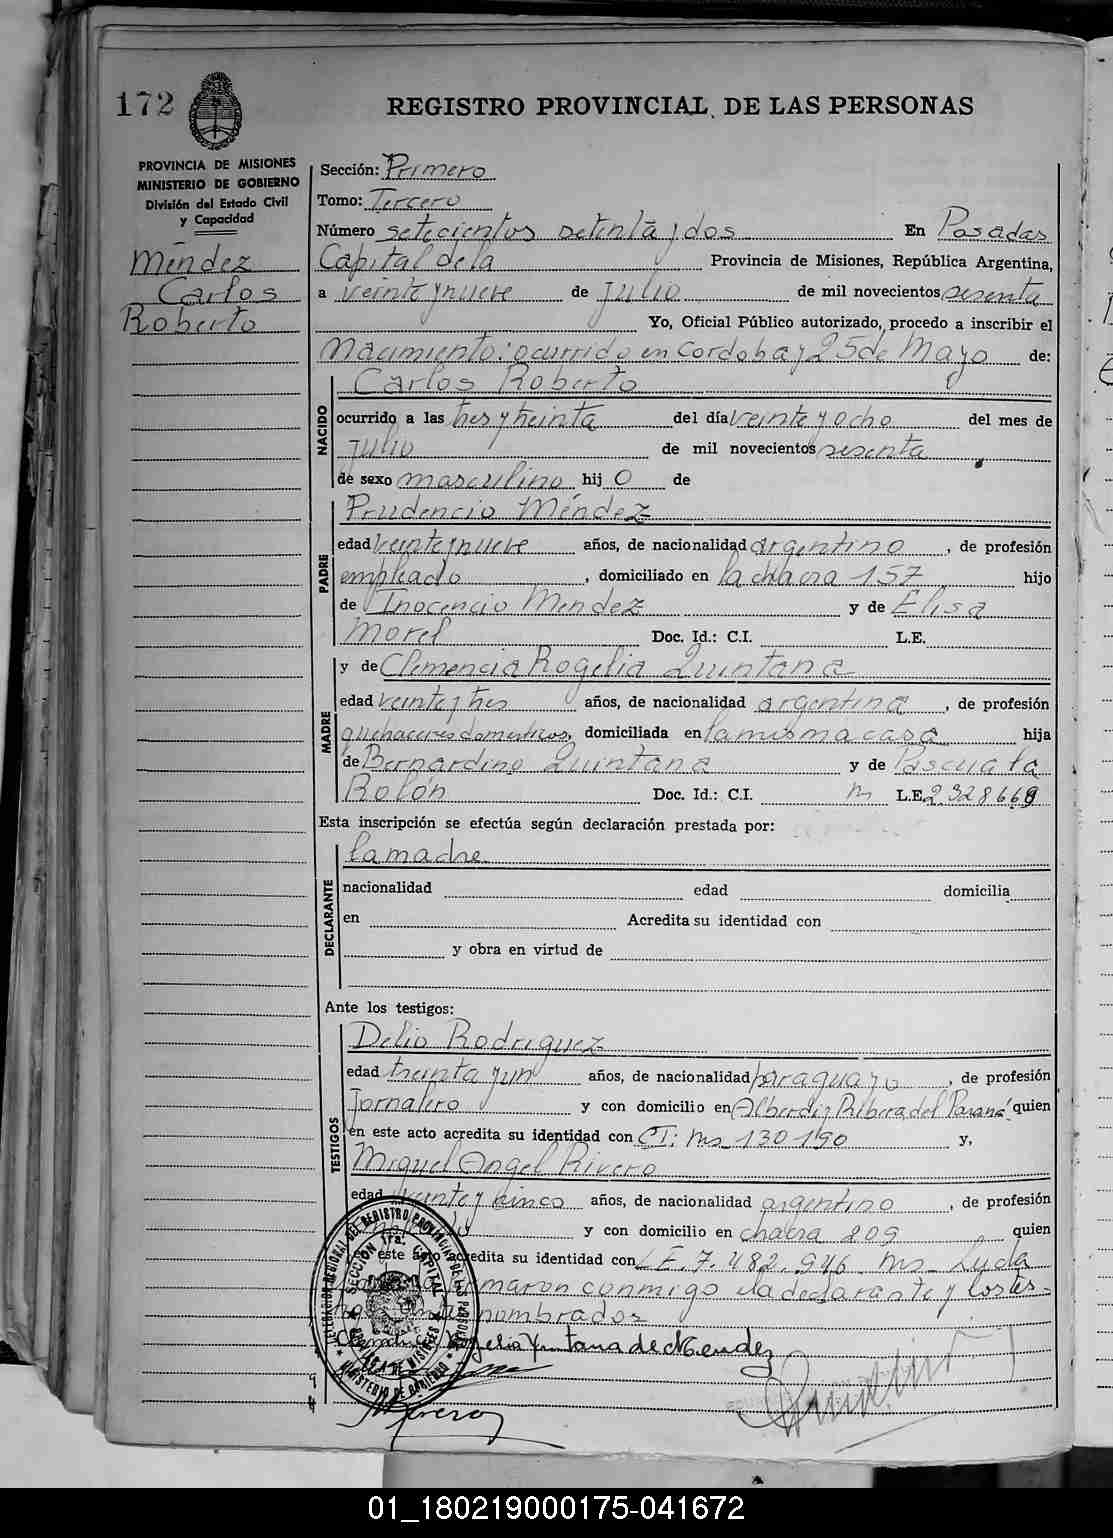 172
REGISTRO PROVINCIAL DE LAS PERSONAS
PROVINCIA DE MISIONES
MINISTERIO DE GOBIERNO
División del Estado Civil
y Capacidad
Méndez
Carlos
Roberto
Sección: Primero
Tomo: Tercero
Número setecientos setenta y dos En Posadas
Capital de la Provincia de Misiones, República Argentina,
a veinte y nueve de Julio de mil novecientos sesenta
Yo, Oficial Público autorizado, procedo a inscribir el
Nacimiento: ocurrido en Cordoba y 25 de Mayo de:
NACIDO
Carlos Roberto
ocurrido a las tres y treinta del día veinte y ocho del mes de
Julio de mil novecientos sesenta
de sexo masculino hij o de
PADRE
Prudencio Méndez
edad veinte y nueve años, de nacionalidad argentino, de profesión
empleado, domiciliado en la chacra 157 hijo
de Inocencio Mendez y de Elisa
Morel Doc. Id.: C.I. L.E.
MADRE
y de Clemencia Rogelia Quintana
edad veinte y tres años, de nacionalidad argentina, de profesión
quehaceres domesticos, domiciliada en la misma casa hija
de Bernardino Quintana y de Pascuala
Rolón Doc. Id.: C.I. m L.E. 2.328668
Esta inscripción se efectúa según declaración prestada por:
DECLARANTE
la madre
nacionalidad edad domicilia
en Acredita su identidad con
y obra en virtud de
Ante los testigos:
TESTIGOS
Delio Rodriguez
edad treinta y un años, de nacionalidad paraguayo, de profesión
Jornalero y con domicilio en Alberdi y Ribera del Paraná quien
en este acto acredita su identidad con CI: Ms 130190 y,
Miguel Angel Rivero
edad veinte y cinco años, de nacionalidad argentino, de profesión
y con domicilio en chacra 209 quien
este acredita su identidad con L.E. 7.482.946 Ms. Leyda
firmaron conmigo la declarante y los tes-
nombrados
Rogelia Quintana de Mendez
DELEGACION REGIONAL DEL REGISTRO PROVINCIAL DE LAS PERSONAS
SECCION 1ra. CAPITAL
MINISTERIO DE GOBIERNO
01_180219000175-041672